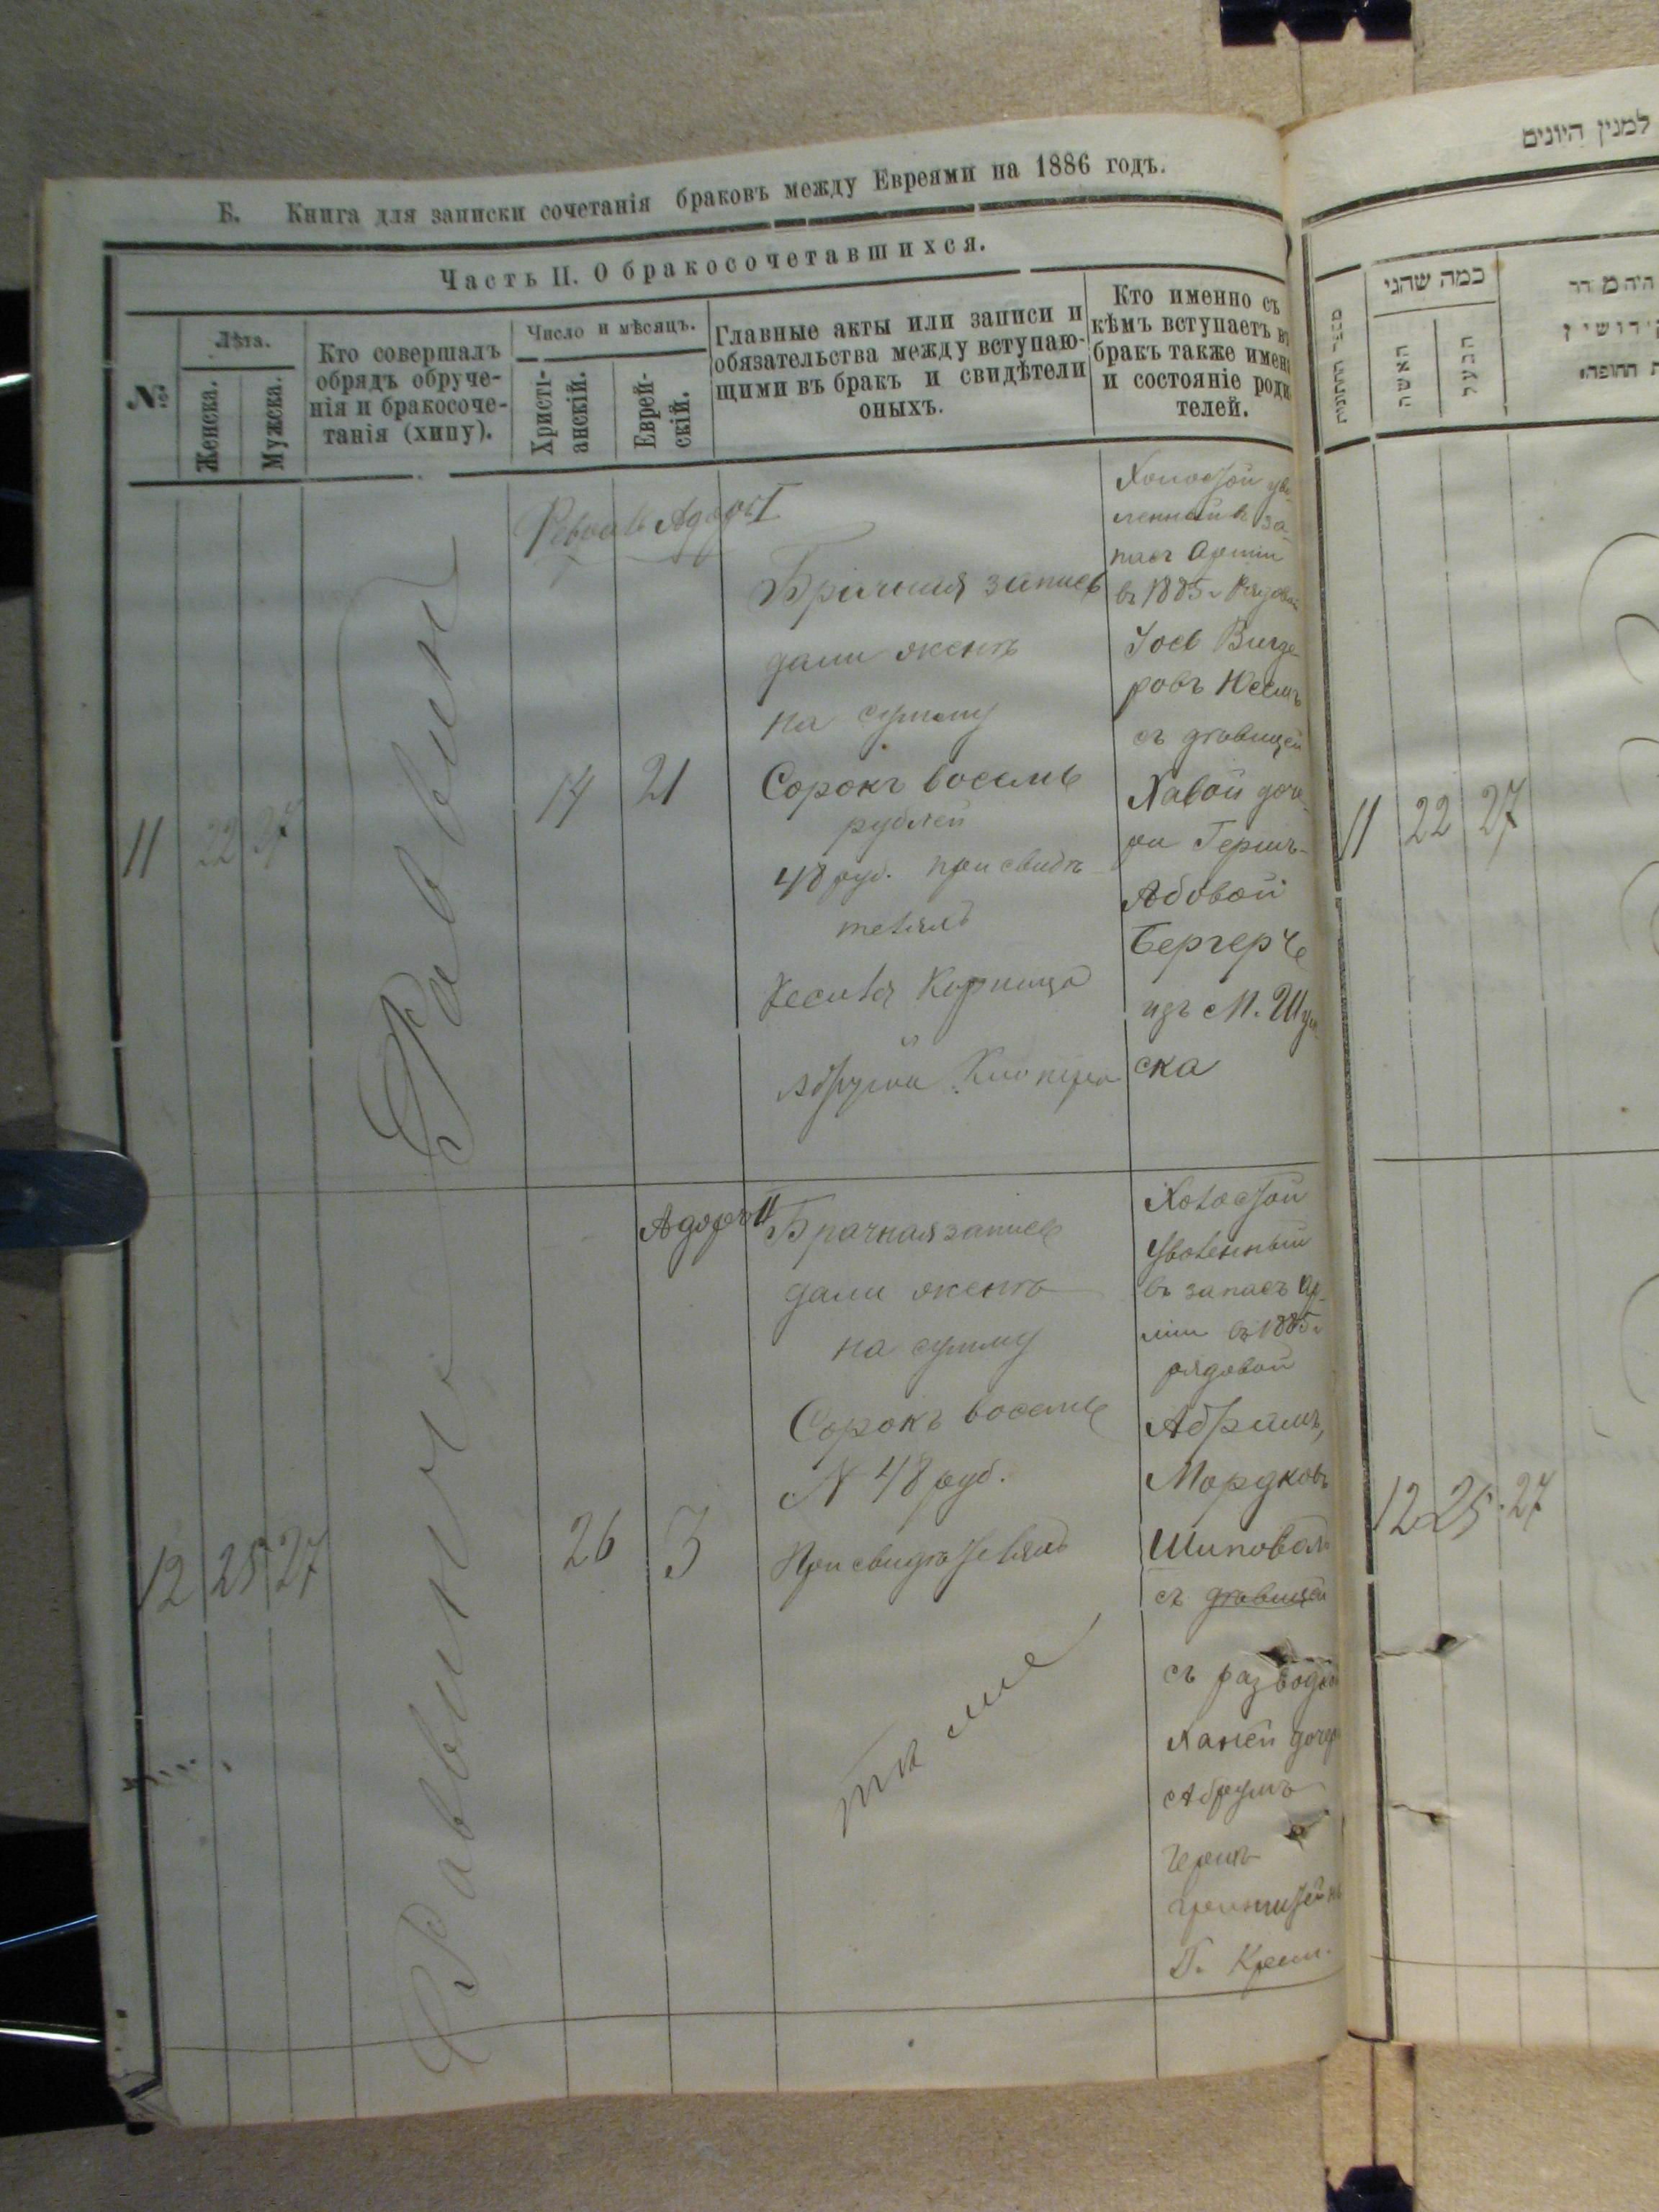 Б. Книга для записки сочетанія браковъ между Евреями на 1886 годъ.
Часть II. О бракосочетавшихся.
№
Лѣта.
Женска.
Мужска.
Кто совершалъ
обрядъ обруче-
нія и бракосоче-
танія (хипу).
Число и мѣсяцъ.
Христі-
анскій.
Еврей-
скій.
Главные акты или записи и
обязательства между вступаю-
щими въ бракъ и свидѣтели
оныхъ.
Кто именно съ
кѣмъ вступаетъ въ
бракъ также имена
и состояніе роди
телей.
Адаръ I
11 22 27
Раввинъ
14 21
Брачная запись
дали женѣ
на сумму
Сорокъ восемь
рублей
48 руб. при свидѣ
теляхъ
Холостой уво
ленный въ за-
пасъ Арміи
въ 1885 г. Рядовой
съ дѣвицей
Хавой доче-
ри Гершъ-
Абовой
Бергеръ
изъ М. Шум
ска
12 25 27
Раввинъ
Адаръ II
26 3
Брачная запись
дали женѣ
на сумму
Сорокъ восемь
N 48 руб.
При свидѣтеляхъ
Холостой
Уволенный
въ запасъ Ар-
міи въ 1885 г.
рядовой
Абрамъ
Мордковъ
Шиповалъ
съ дѣвицей
съ разводкой
Ханей дочери
Абрумъ
Г. Крем.
למנין היונים
כמה שהני
האשה
הבעל
11 22 27
12 25 27